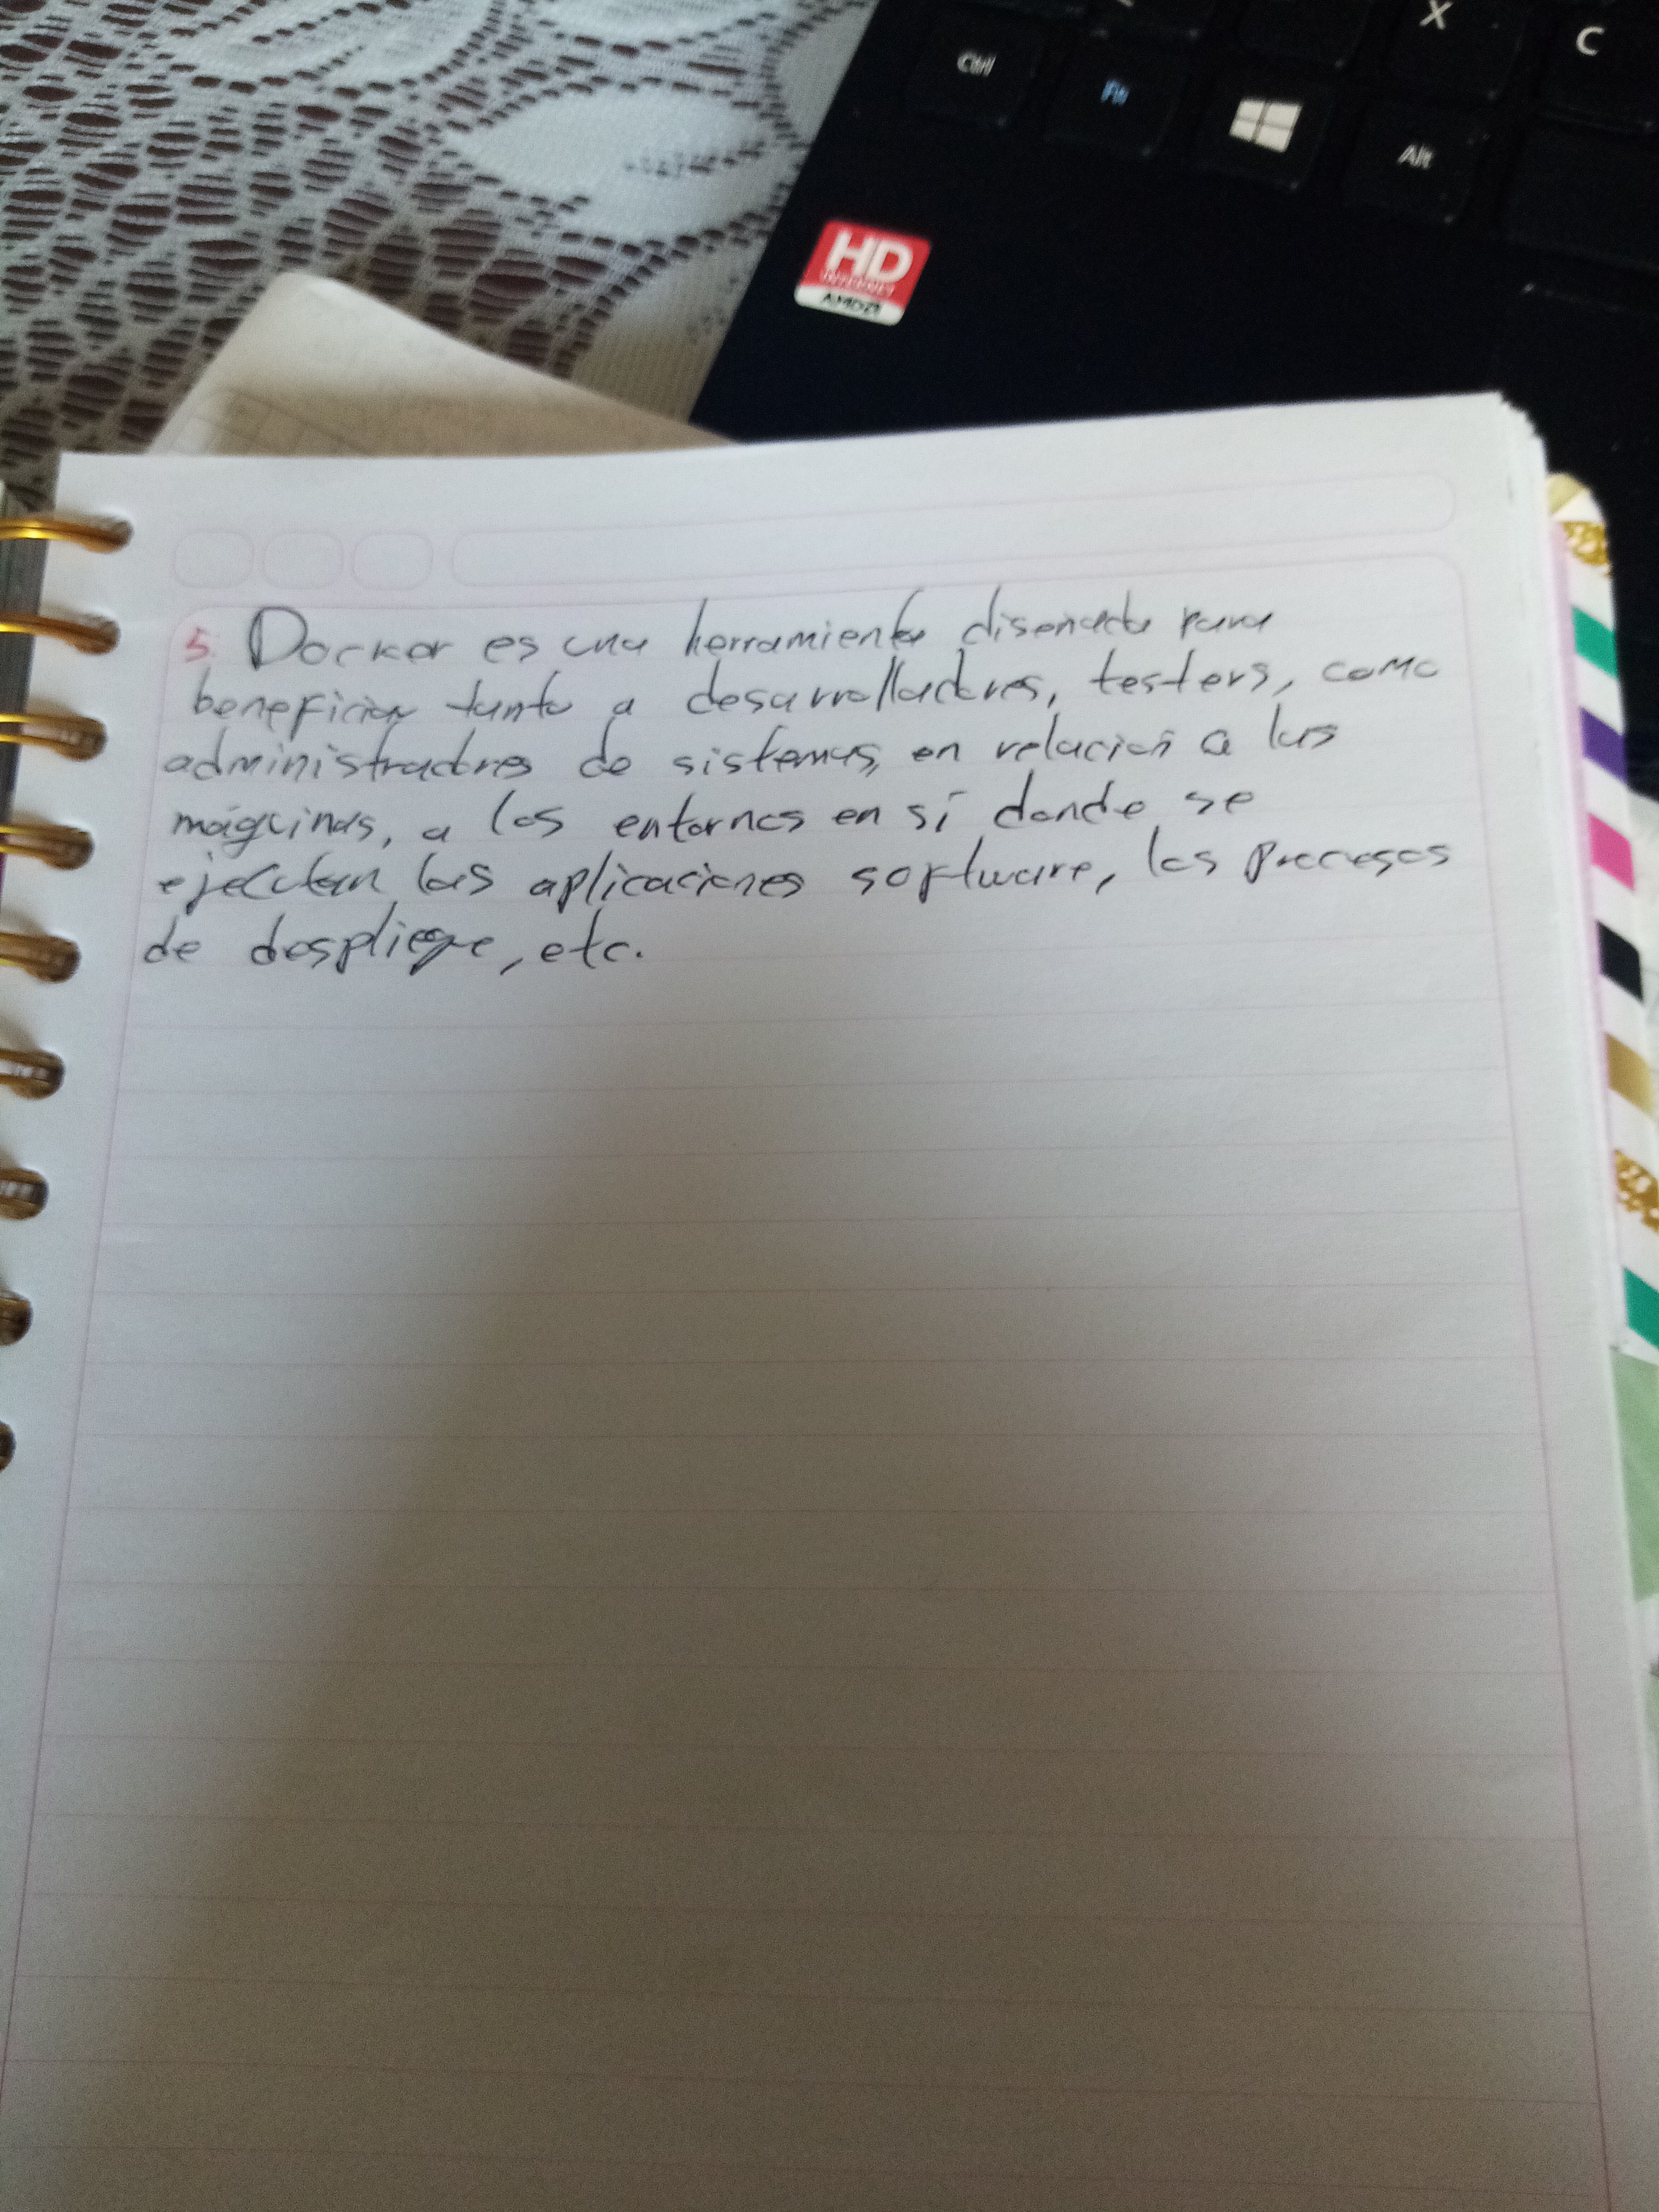 X
C
Ctrl
Fn
Alt
HD
INTERNET
AMD
5. Docker es una herramienta diseñada para
beneficiar tanto a desarrolladores, testers, como
administradores de sistemas, en relación a las
máquinas, a los entornos en sí donde se
ejecutan las aplicaciones software, los procesos
de despliegue, etc.